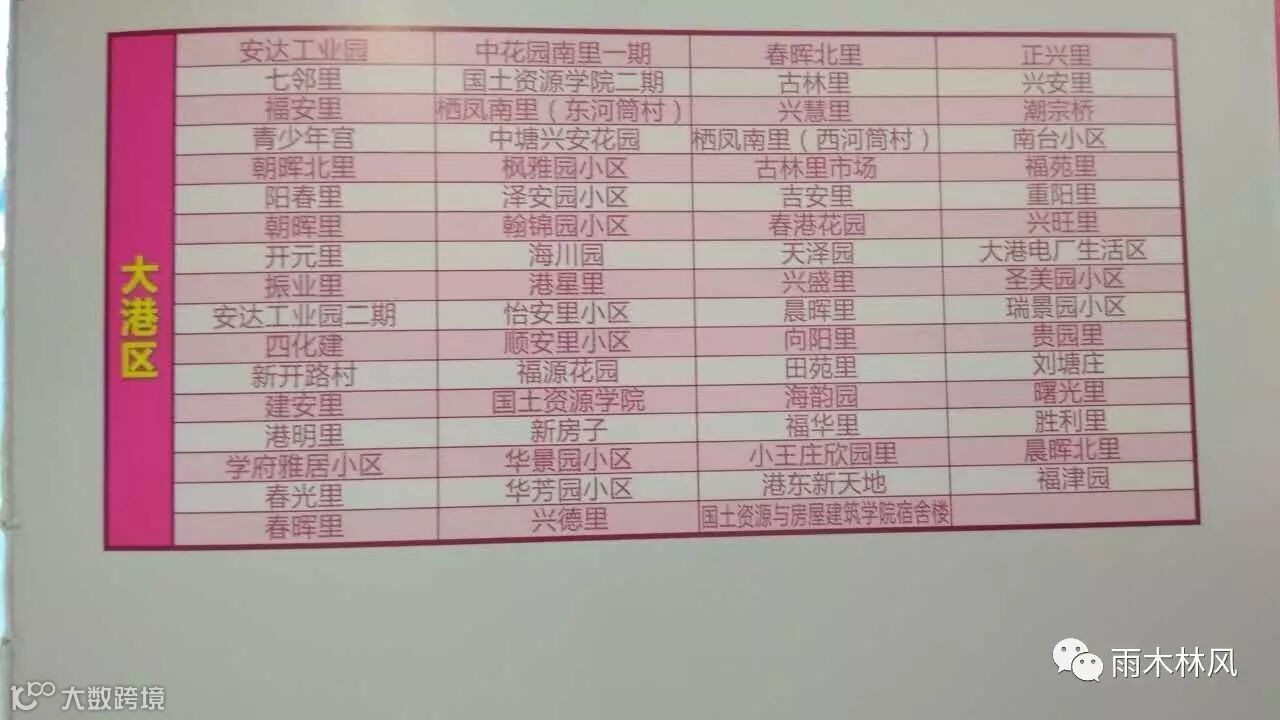 大港区
安达工业园 中花园南里一期 春晖北里 正兴里
七邻里 国土资源学院二期 古林里 兴安里
福安里 栖凤南里（东河筒村） 兴慧里 潮宗桥
青少年宫 中塘兴安花园 栖凤南里（西河筒村） 南台小区
朝晖北里 枫雅园小区 古林里市场 福苑里
阳春里 泽安园小区 吉安里 重阳里
朝晖里 翰锦园小区 春港花园 兴旺里
开元里 海川园 天泽园 大港电厂生活区
振业里 港星里 兴盛里 圣美园小区
安达工业园二期 怡安里小区 晨晖里 瑞景园小区
四化建 顺安里小区 向阳里 贵园里
新开路村 福源花园 田苑里 刘塘庄
建安里 国土资源学院 海韵园 曙光里
港明里 新房子 福华里 胜利里
学府雅居小区 华景园小区 小王庄欣园里 晨晖北里
春光里 华芳园小区 港东新天地 福津园
春晖里 兴德里 国土资源与房屋建筑学院宿舍楼
雨木林风
大数跨境